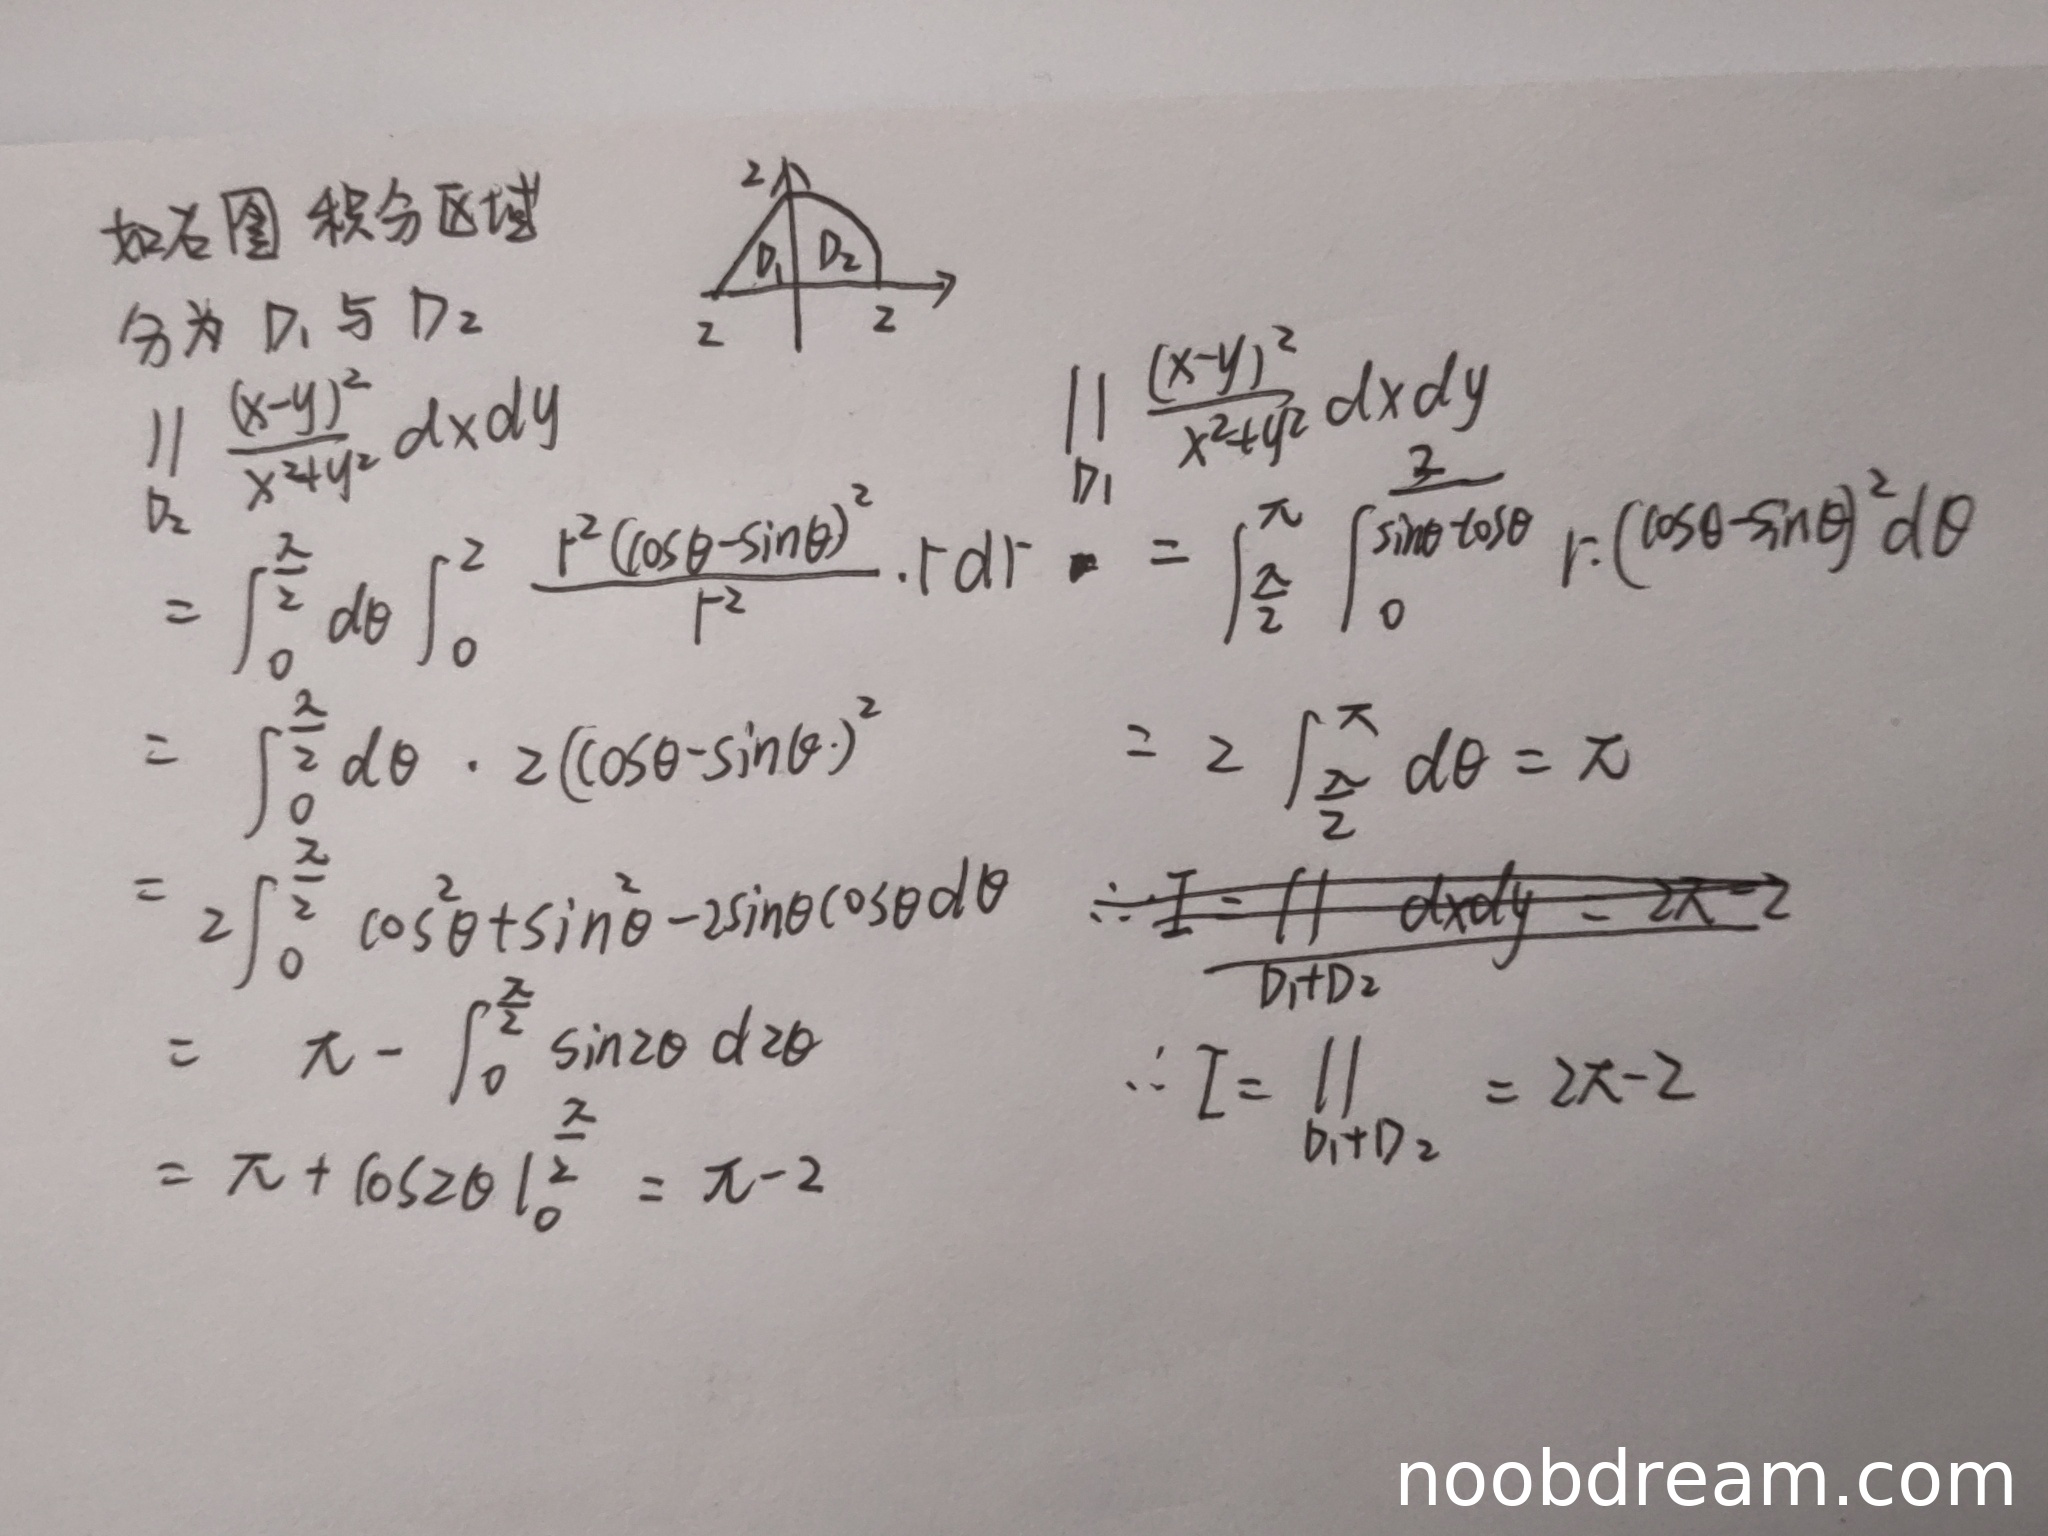 如右图 积分区域
分为 D₁ 与 D₂
2
D₁ D₂
2 2
∬_{D₂} (x-y)²/(x²+y²) dxdy
= ∫_0^{π/2} dθ ∫_0^2 r²(cosθ-sinθ)²/r² · rdr
= ∫_0^{π/2} dθ · 2(cosθ-sinθ)²
= 2∫_0^{π/2} cos²θ+sin²θ-2sinθcosθdθ
= π - ∫_0^{π/2} sin2θ d2θ
= π + cos2θ|_0^{π/2} = π-2
∬_{D₁} (x-y)²/(x²+y²) dxdy
= ∫_{π/2}^{π} ∫_0^{2/(sinθ-cosθ)} r·(cosθ-sinθ)²dθ
= 2∫_{π/2}^{π} dθ = π
∴ I = ∬_{D₁+D₂} dxdy = 2π-2
∴ I = ∬_{D₁+D₂} = 2π-2
noobdream.com